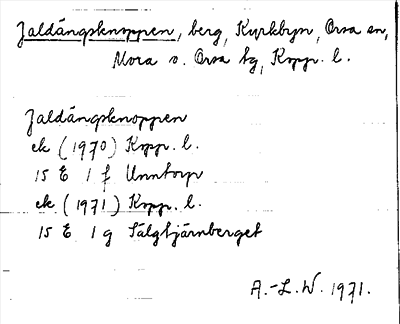 Jaldängsknoppen, berg, Kyrkbyn, Orsa sn,
Mora o. Orsa tg, Kopp. l.
Jaldängsknoppen
ek (1970) Kopp. l.
15 E 1 f Unntorp
ek (1971) Kopp. l.
15 E 1 g Sälgtjärnberget
A.-L.W. 1971.